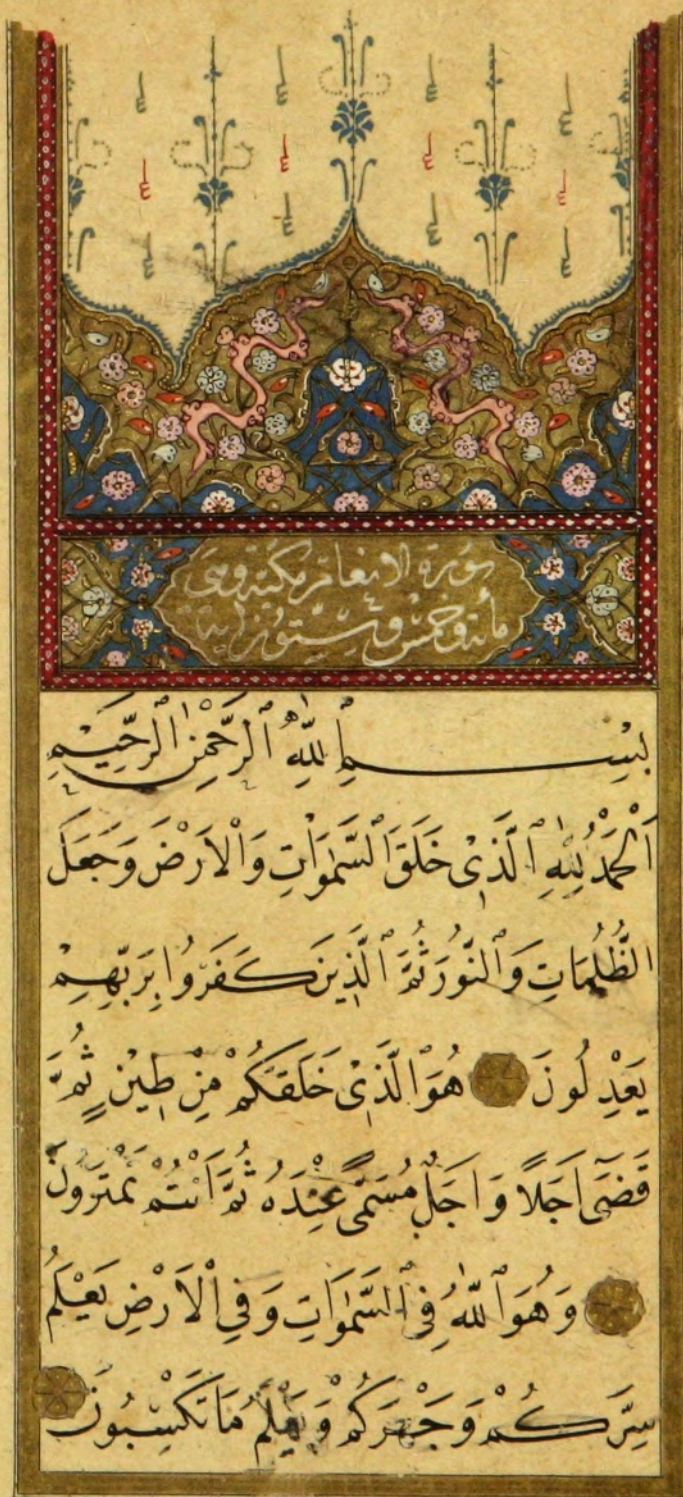 سورة الانعام مكية وهى
مأتة وخمس وستون اية
بِسْمِ ٱللّٰهِ ٱلرَّحْمٰنِ ٱلرَّحِيْمِ
اَلْحَمْدُ لِلّٰهِ ٱلَّذِىْ خَلَقَ ٱلسَّمٰوَاتِ وَٱلْاَرْضَ وَجَعَلَ
ٱلظُّلُمَاتِ وَٱلنُّوْرَ ثُمَّ ٱلَّذِيْنَ كَفَرُوا بِرَبِّهِمْ
يَعْدِلُونَ هُوَ ٱلَّذِىْ خَلَقَكُمْ مِنْ طِيْنٍ ثُمَّ
قَضَىٓ اَجَلًا وَاَجَلٌ مُسَمًّى عِنْدَهُ ثُمَّ اَنْتُمْ تَمْتَرُونَ
وَهُوَ ٱللّٰهُ فِى ٱلسَّمٰوَاتِ وَفِى ٱلْاَرْضِ يَعْلَمُ
سِرَّكُمْ وَجَهْرَكُمْ وَيَعْلَمُ مَا تَكْسِبُونَ